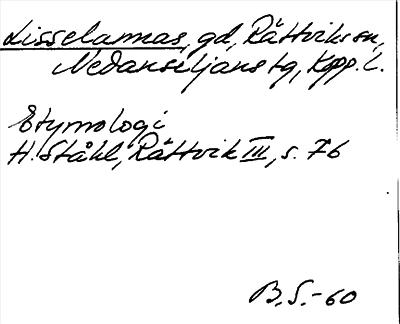 Lisselannas, gd, Rättviks sn,
Nedansiljans tg, Kopp. l.
Etymologi
H. Ståhl, Rättvik III, s. 76
B.S.-60